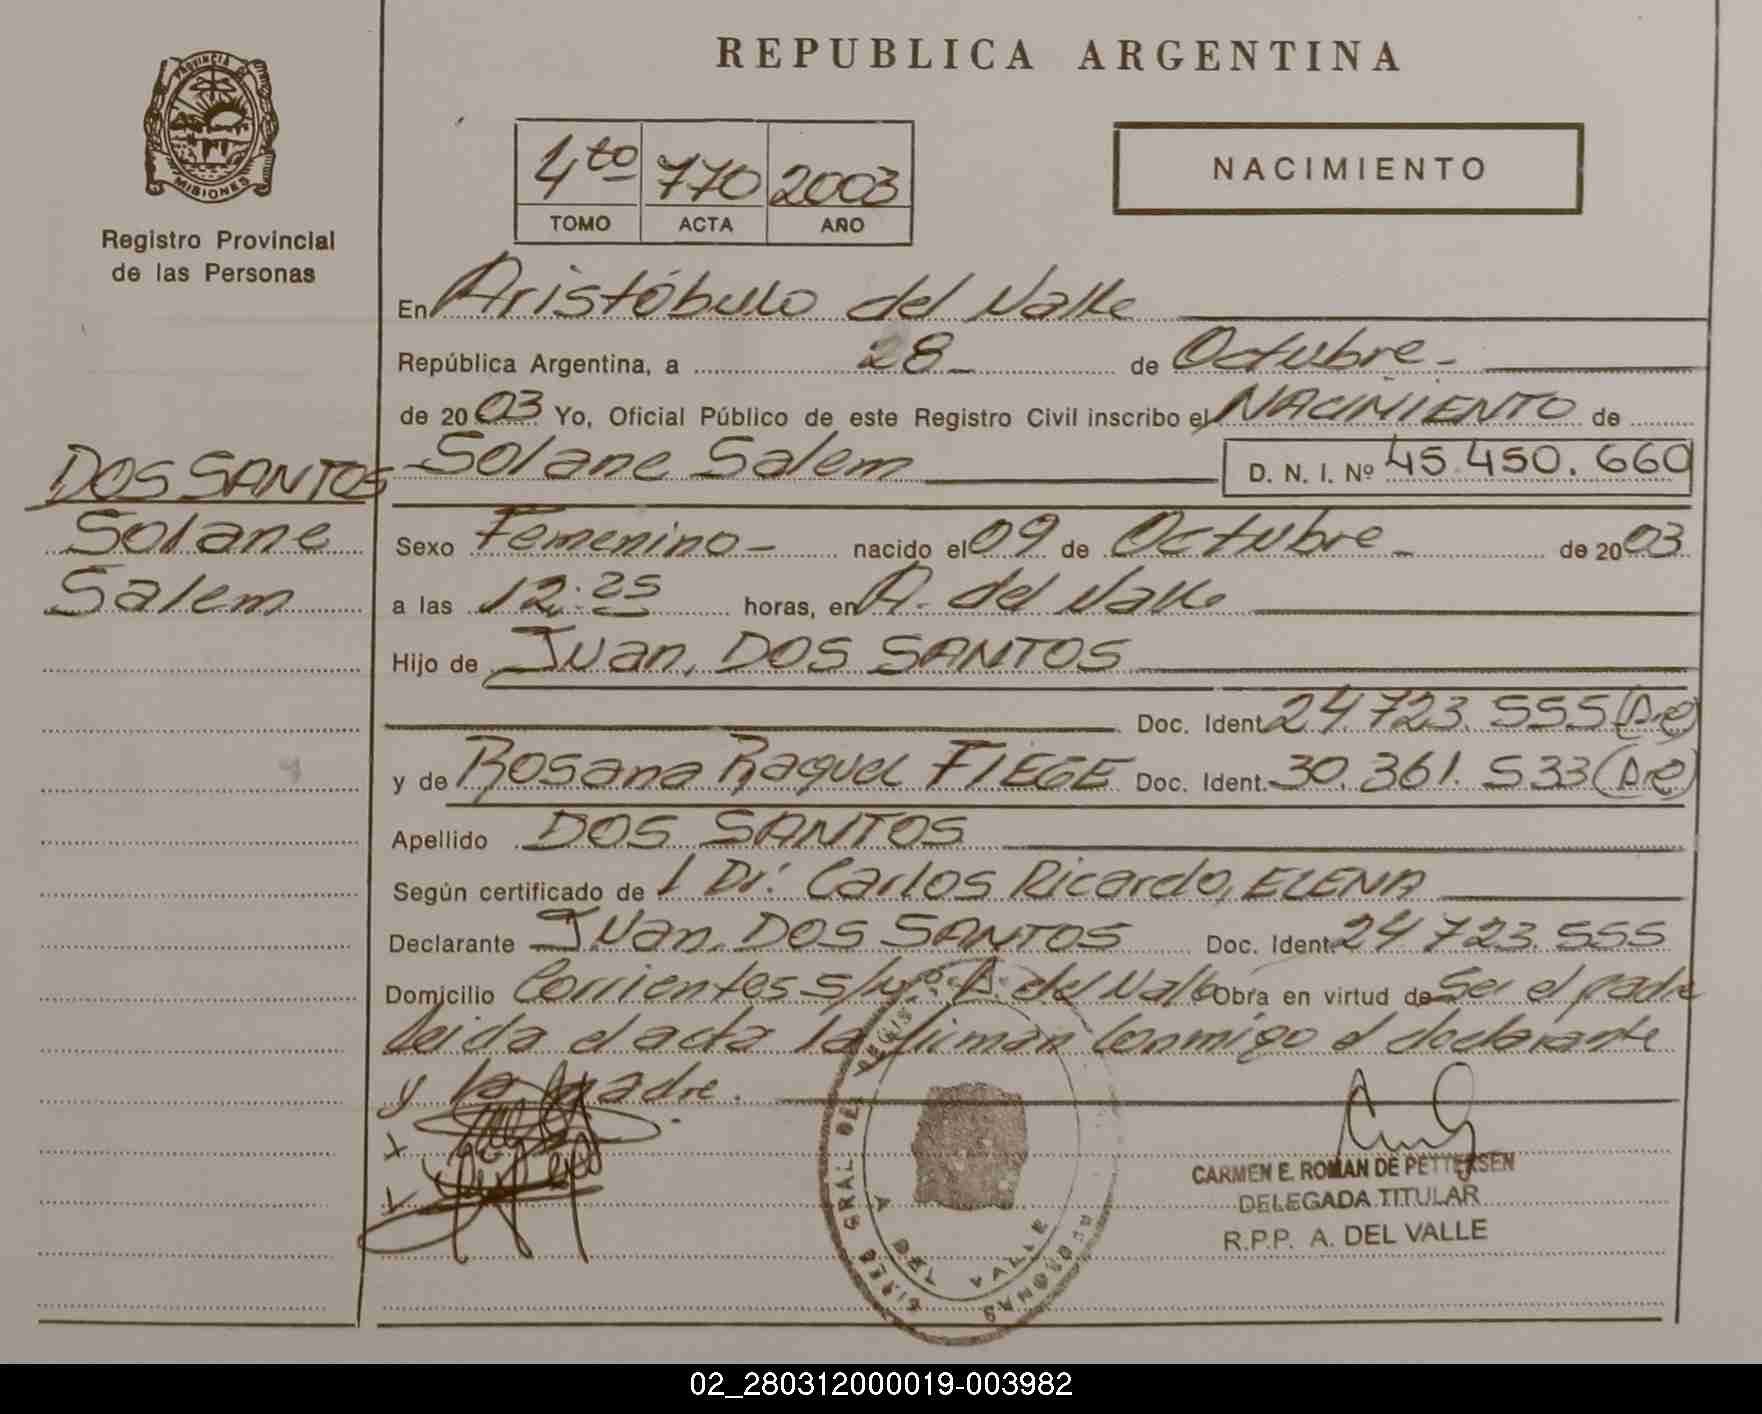 REPUBLICA ARGENTINA
PROVINCIA DE
MISIONES
Registro Provincial
de las Personas
4to 770 2003
TOMO ACTA AÑO
NACIMIENTO
En Aristóbulo del Valle
República Argentina, a 28 de Octubre
de 2003 Yo, Oficial Público de este Registro Civil inscribo el NACIMIENTO de
Solane Salem D. N. I. Nº 45.450.660
DOS SANTOS
Solane
Salem
Sexo Femenino nacido el 09 de Octubre de 2003
a las 12:25 horas, en A. del Valle
Hijo de Juan, DOS SANTOS
Doc. Ident. 24.723.555 (Are)
y de Rosana Raquel FIEGE Doc. Ident. 30.361.533 (Are)
Apellido DOS SANTOS
Según certificado de / Dr: Carlos Ricardo, ELENA
Declarante Juan, DOS SANTOS Doc. Ident. 24.723.555
Domicilio Corrientes s/nº A. del Valle Obra en virtud de Ser el padre
leida el acta la firman conmigo el declarante
y la madre.
CARMEN E. ROMAN DE PETTERSEN
DELEGADA TITULAR
R.P.P. A. DEL VALLE
A DEL VALLE
02_280312000019-003982